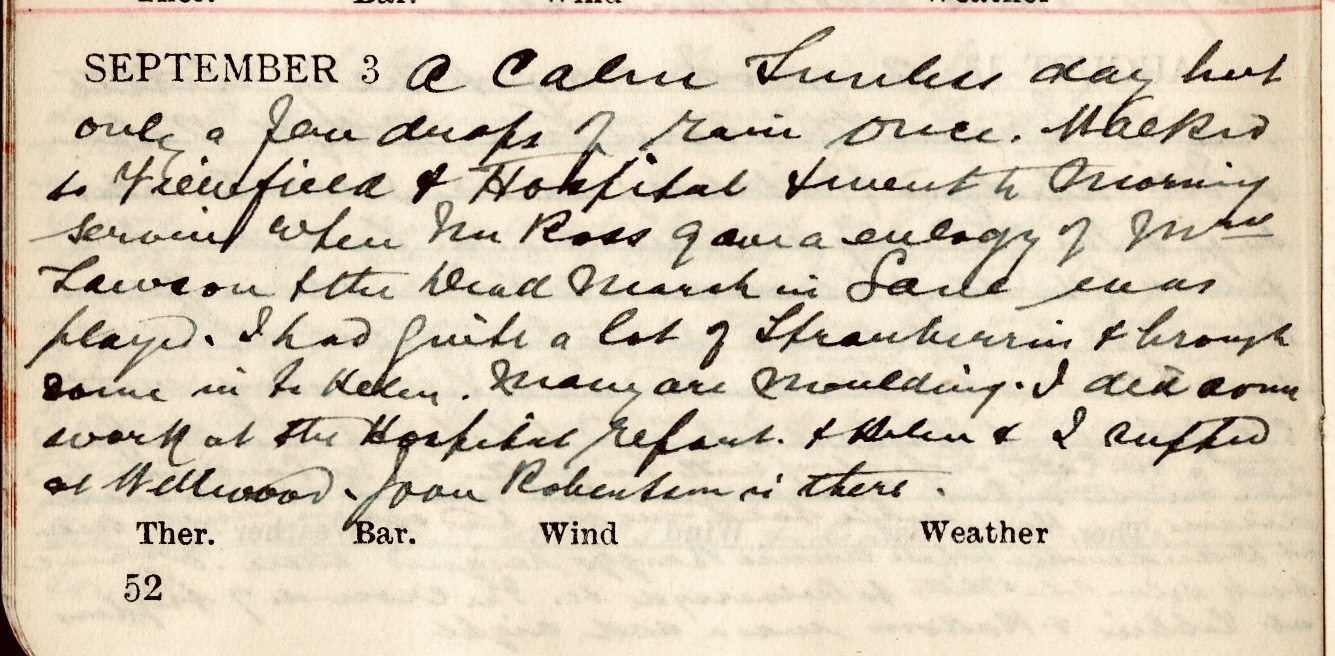 SEPTEMBER 3 A Calm Sunless day but
only a few drops of rain once. Walked
to Viewfield & Hospital & went to Morning
service when Mr Ross gave a eulogy of
Lawson & the Dead March in Saul was
played. I had quite a lot of Strawberries & brought
some in to Helen. Many are moulding. I did some
work at the Hospital Report. & Helen & I supped
at Wellwood. Joan Robertson is there.
Ther. Bar. Wind Weather
52